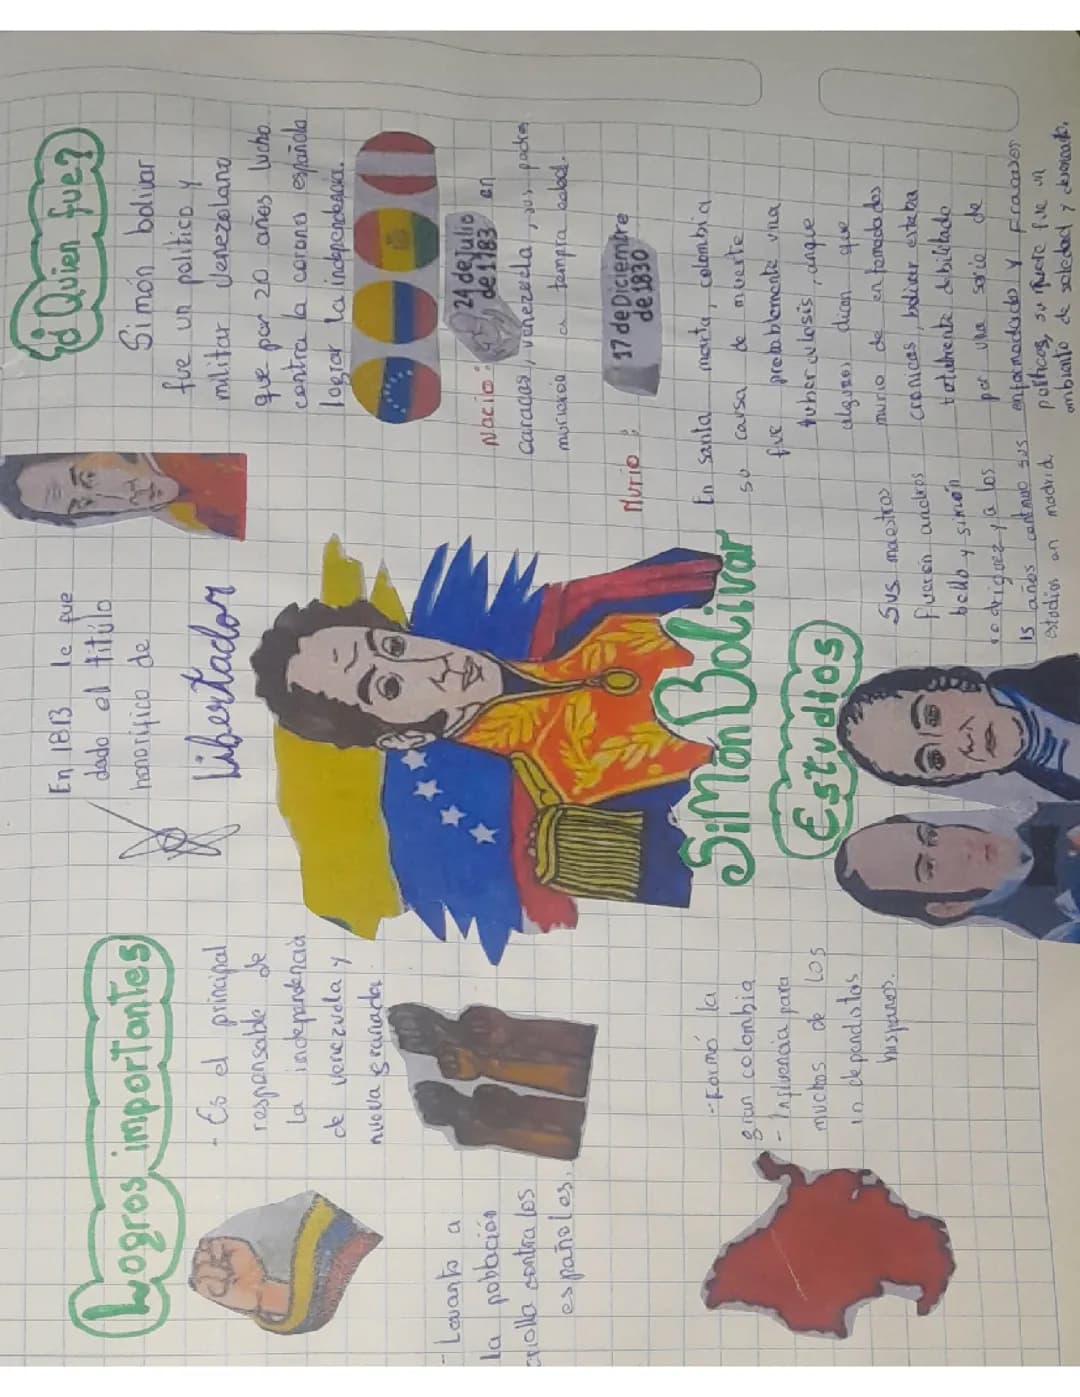 Logros importantes
- Es el principal
responsable de
la independencia
de venezuela y
nueva granada.
- Levanto a
la población
criolla contra los
españoles.
- Formó la
gran colombia
- Influencia para
muchos de los
independentos
hispanos.
En 1813 le fue
dado el titúlo
honorifico de
Libertador
Simón Bolivar
Estudios
Sus maestros
fueron andres
bello y simón
rodriguez y a los
15 años continuo sus
estudios en madrid.
¿Quien fue?
Simón bolivar
fue un politico y
militar venezolano
que por 20 años lucho
contra la corona española
lograr la independencia.
Nacio: 24 de Julio
de 1783 en
Caracas, venezuela, sus padres
murieron a tempra edad.
Murio: 17 de Diciembre
de 1830
En santa marta, colombia
su causa de muerte
fue probablemente una
tuberculosis, anque
algunos dicen que
murio de enfermedades
cronicas, bolivar estaba
totalmente debilitado
por una serie de
enfermedades y fracasos
politicos, su muerte fue un
ambiente de soledad y